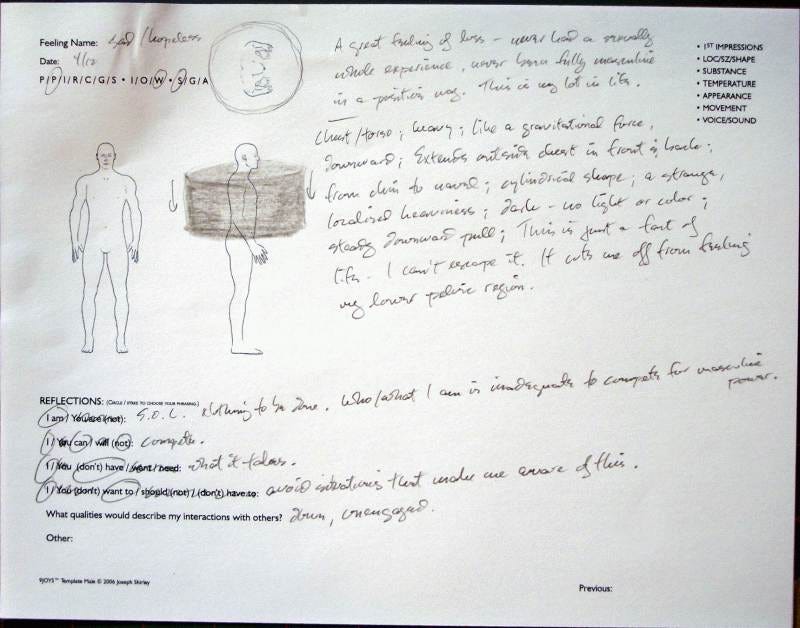 Feeling Name: sad / hopeless
Date: 4/12
P/P/I/R/C/G/S • I/O/W • S/G/A
A great feeling of loss - never had a sexually
whole experience, never been fully masculine
in a positive way. This is my lot in life.
• 1ST IMPRESSIONS
• LOC/SZ/SHAPE
• SUBSTANCE
• TEMPERATURE
• APPEARANCE
• MOVEMENT
• VOICE/SOUND
Chest/torso; heavy; like a gravitational force,
downward; Extends outside chest in front & back;
from chin to navel; cylindrical shape; a strange,
localized heaviness; dark - no light or color;
steady downward pull; This is just a fact of
life - I can't escape it. It cuts me off from feeling
my lower pelvic region.
REFLECTIONS: (CIRCLE / STRIKE TO CHOOSE YOUR PHRASING.)
I am / You are (not): S.O.L. Nothing to be done. Who/what I am is inadequate to compete for masculine
power.
I / You can / will (not): compete.
I / You (don't) have / want / need: what it takes.
I / You (don't) want to / should (not) / (don't) have to: avoid interactions that make me aware of this.
What qualities would describe my interactions with others? Down, unengaged.
Other:
9JOYS™ Template Male © 2006 Joseph Shirley
Previous: